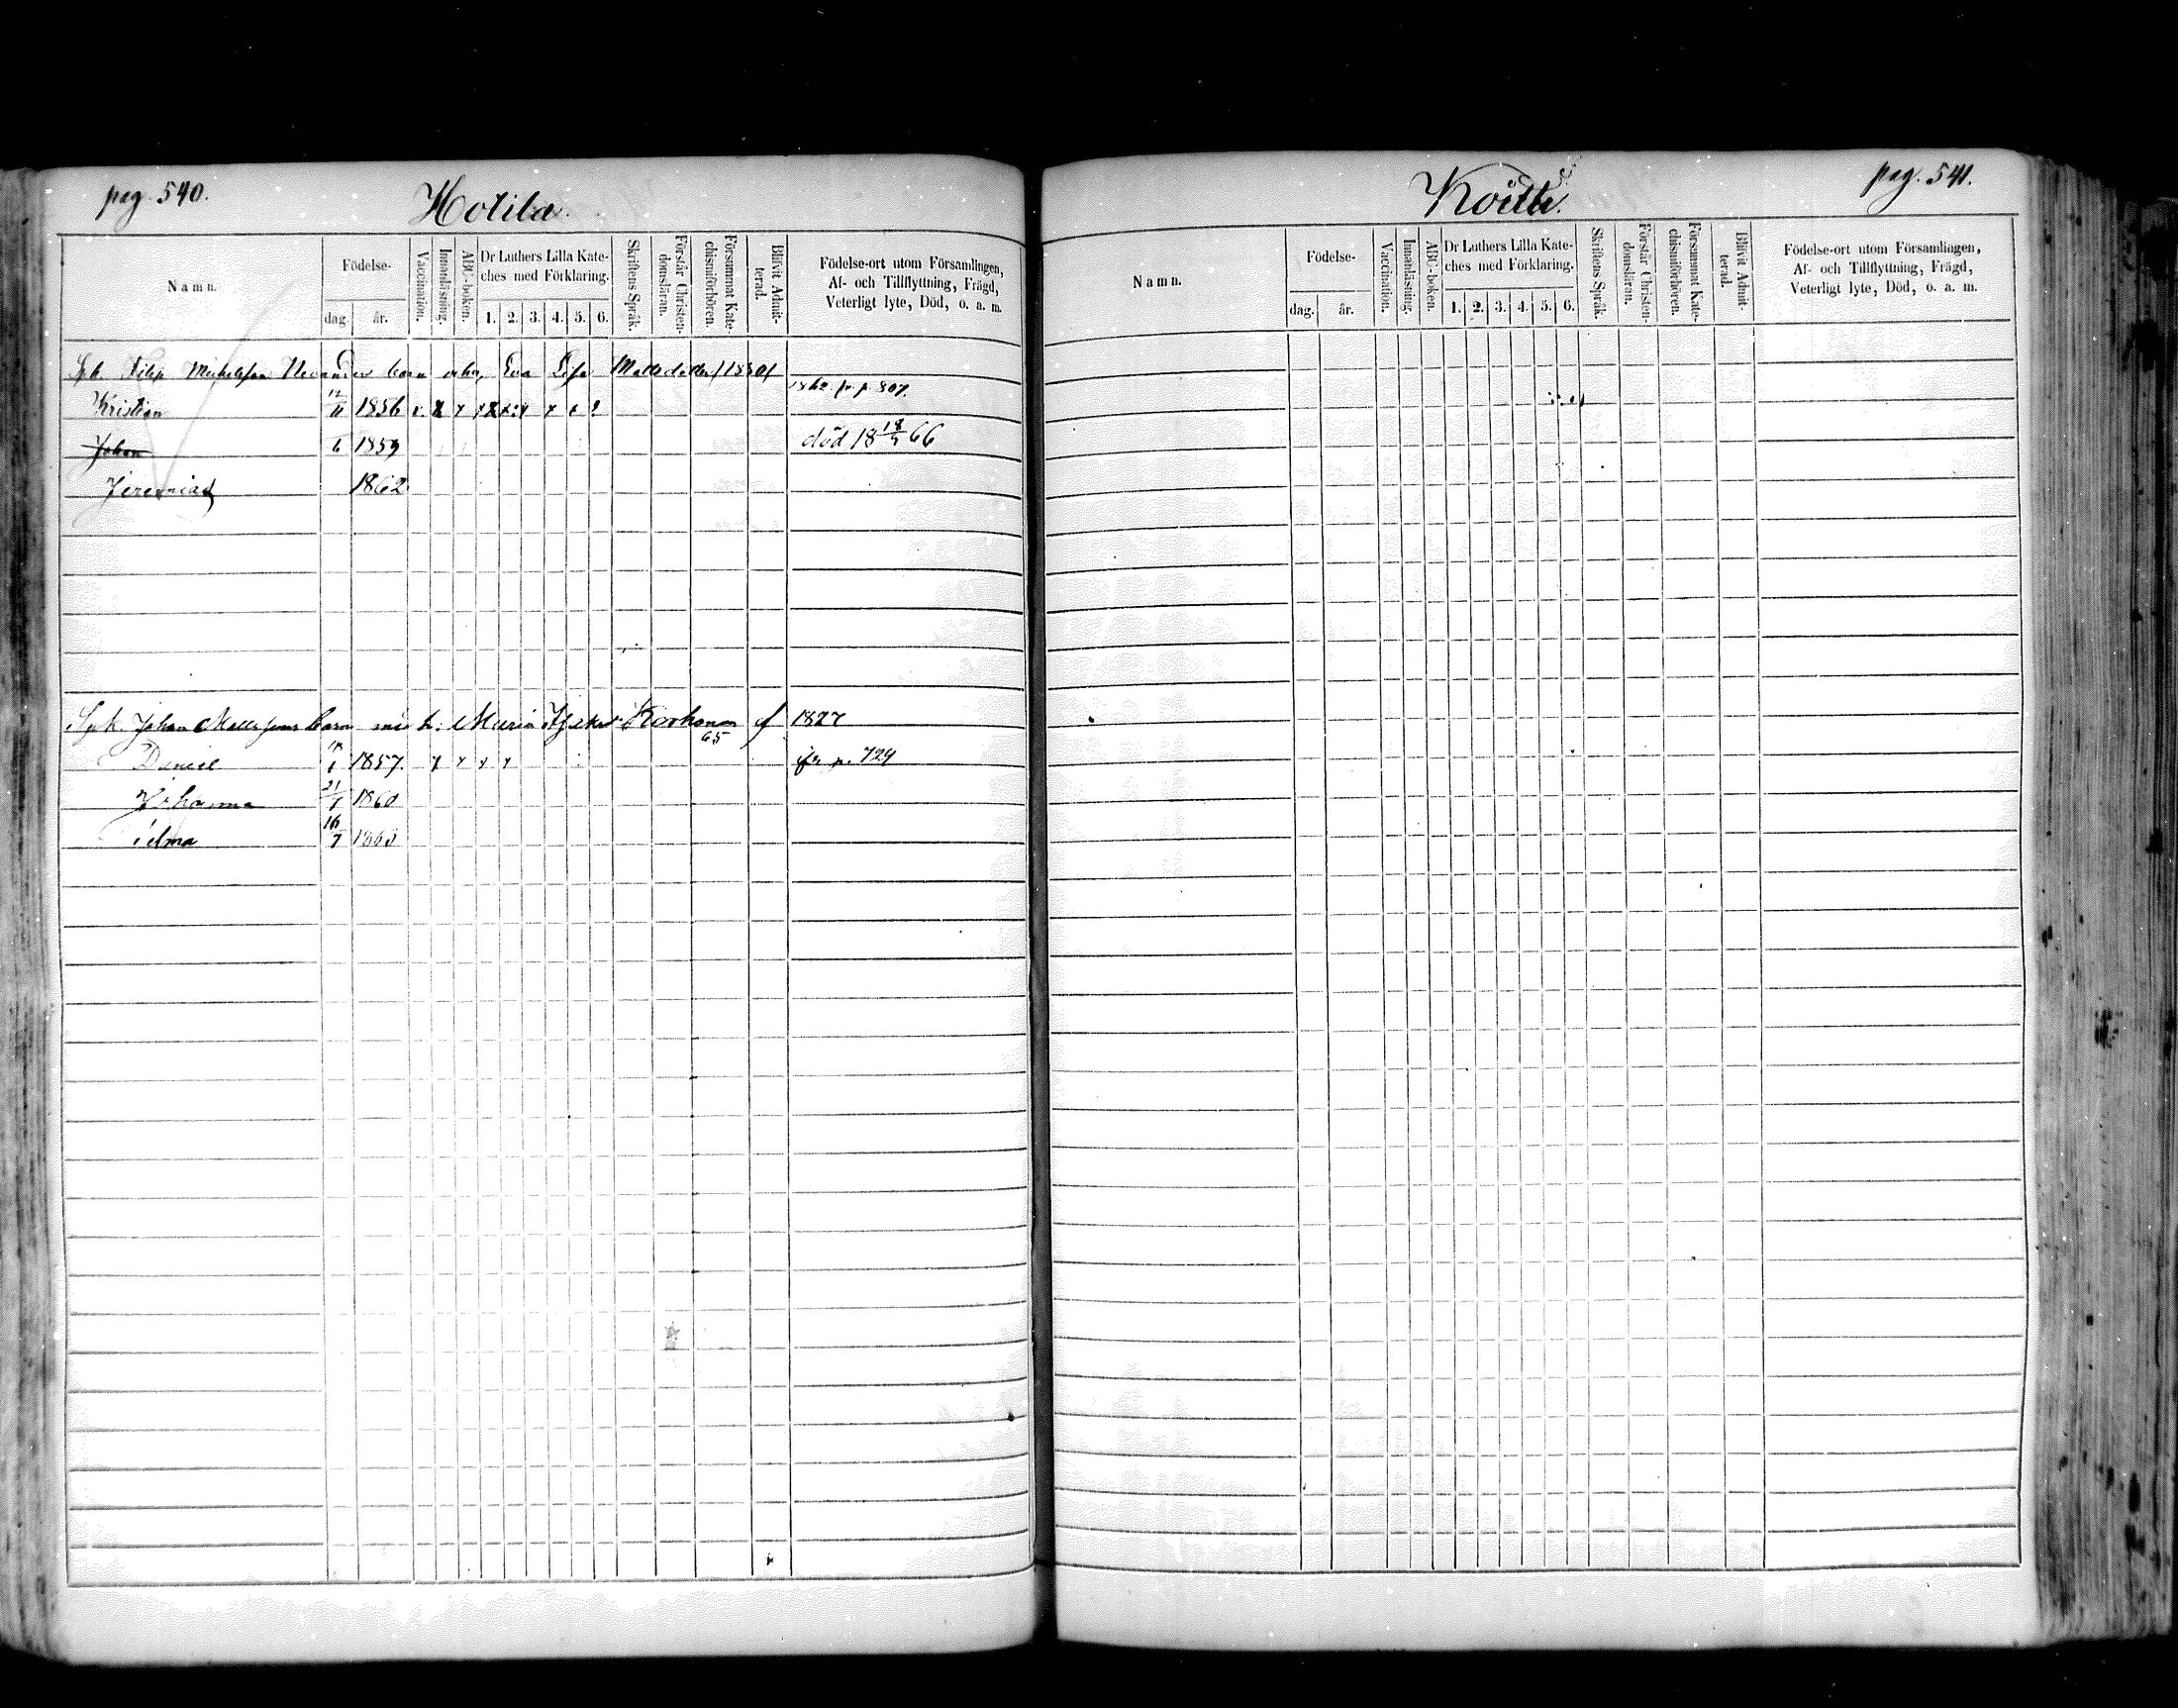 pag. 540.
Hotila.
Namn.
Födelse-
dag. år.
Vaccination.
Innanläsning.
ABC-boken.
Dr Luthers Lilla Kateches med Förklaring.
1. 2. 3. 4. 5. 6.
Skriftens Språk.
Förstår Christendomsläran.
Försummat Katechismiförhören.
Blifvit Admitterad.
Födelse-ort utom Församlingen,
Af- och Tillflyttning, Frägd,
Veterligt lyte, Död, o. a. m.
Michelsson barn Eva Lisa Mattsdotter 1830
Kristian 12/11 1856 1862 fr p 807.
Johan 6 1859 död 18 18/4 66
Jeremias 1862
Johan Mattssons barn med h. Maria Korhonen f 1827
65
Daniel 1857. fr p. 729
Johanna 21/1 1860
Selma 16/7 1863
pag. 541.
Namn.
Födelse-
dag. år.
Vaccination.
Innanläsning.
ABC-boken.
Dr Luthers Lilla Kateches med Förklaring.
1. 2. 3. 4. 5. 6.
Skriftens Språk.
Förstår Christendomsläran.
Försummat Katechismiförhören.
Blifvit Admitterad.
Födelse-ort utom Församlingen,
Af- och Tillflyttning, Frägd,
Veterligt lyte, Död, o. a. m.